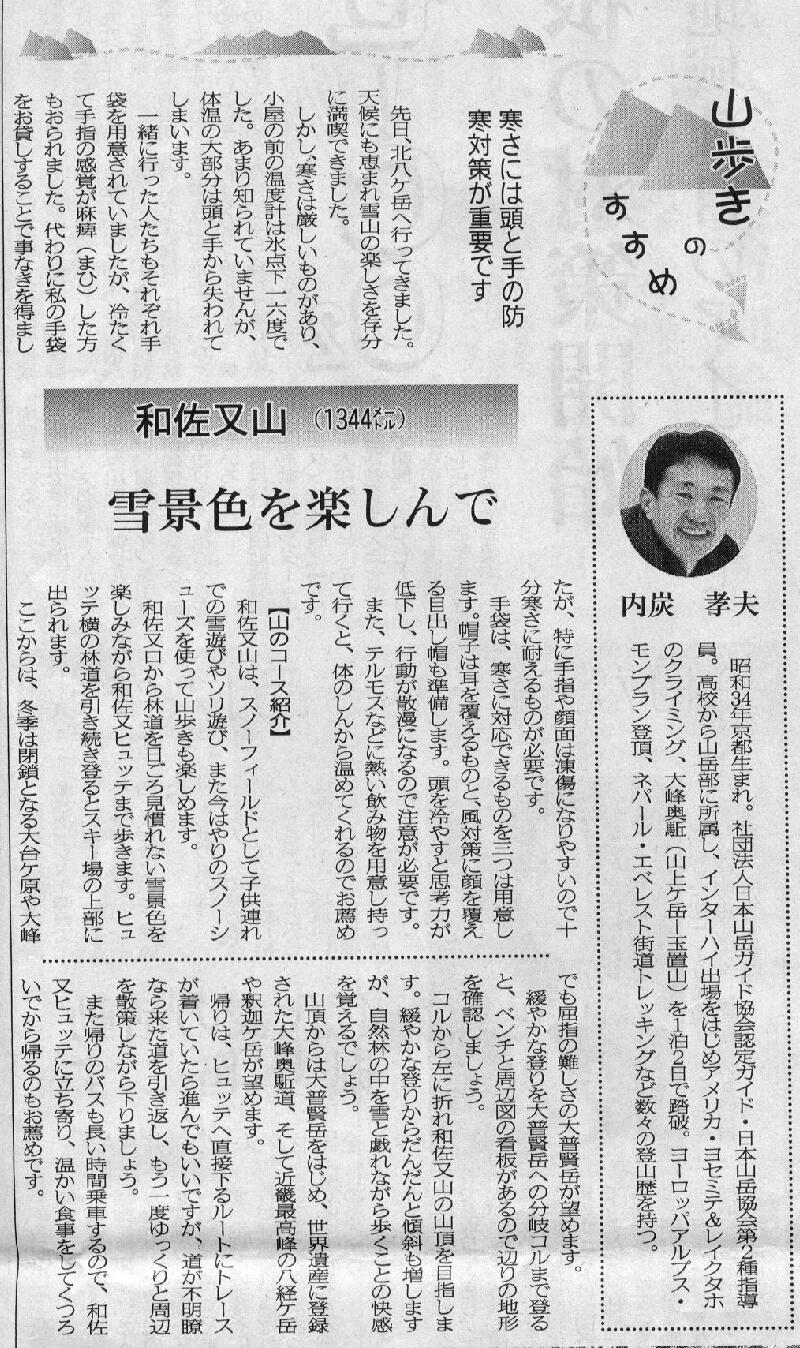 山歩き
の
すすめ
寒さには頭と手の防
寒対策が重要です
先日、北八ケ岳へ行ってきました。
天候にも恵まれ雪山の楽しさを存分
に満喫できました。
しかし、寒さは厳しいものがあり、
小屋の前の温度計は氷点下一六度で
した。あまり知られていませんが、
体温の大部分は頭と手から失われて
しまいます。
一緒に行った人たちもそれぞれ手
袋を用意されていましたが、冷たく
て手指の感覚が麻痺（まひ）した方
もおられました。代わりに私の手袋
をお貸しすることで事なきを得まし
和佐又山（1344㍍）
雪景色を楽しんで
たが、特に手指や顔面は凍傷になりやすいので十
分寒さに耐えるものが必要です。
手袋は、寒さに対応できるものを三つは用意し
ます。帽子は耳を覆えるものと、風対策に顔を覆え
る目出し帽も準備します。頭を冷やすと思考力が
低下し、行動が散漫になるので注意が必要です。
また、テルモスなどに熱い飲み物を用意し持っ
て行くと、体のしんから温めてくれるのでお薦め
です。
【山のコース紹介】
和佐又山は、スノーフィールドとして子供連れ
での雪遊びやソリ遊び、また今はやりのスノーシ
ューズを使って山歩きも楽しめます。
和佐又口から林道を日ごろ見慣れない雪景色を
楽しみながら和佐又ヒュッテまで歩きます。ヒュ
ッテ横の林道を引き続き登るとスキー場の上部に
出られます。
ここからは、冬季は閉鎖となる大台ケ原や大峰
でも屈指の難しさの大普賢岳が望めます。
緩やかな登りを大普賢岳への分岐コルまで登る
と、ベンチと周辺図の看板があるので辺りの地形
を確認しましょう。
コルから左に折れ和佐又山の山頂を目指しま
す。緩やかな登りからだんだんと傾斜も増します
が、自然林の中を雪と戯れながら歩くことの快感
を覚えるでしょう。
山頂からは大普賢岳をはじめ、世界遺産に登録
された大峰奥駈道、そして近畿最高峰の八経ケ岳
や釈迦ケ岳が望めます。
帰りは、ヒュッテへ直接下るルートにトレース
が着いていたら進んでもいいですが、道が不明瞭
なら来た道を引き返し、もう一度ゆっくりと周辺
を散策しながら下りましょう。
また帰りのバスも長い時間乗車するので、和佐
又ヒュッテに立ち寄り、温かい食事をしてくつろ
いでから帰るのもお薦めです。
内炭　孝夫
昭和34年京都生まれ。社団法人日本山岳ガイド協会認定ガイド・日本山岳協会第2種指導
員。高校から山岳部に所属し、インターハイ出場をはじめアメリカ・ヨセミテ＆レイクタホ
のクライミング、大峰奥駈（山上ケ岳ー玉置山）を1泊2日で踏破。ヨーロッパアルプス・
モンブラン登頂、ネパール・エベレスト街道トレッキングなど数々の登山歴を持つ。